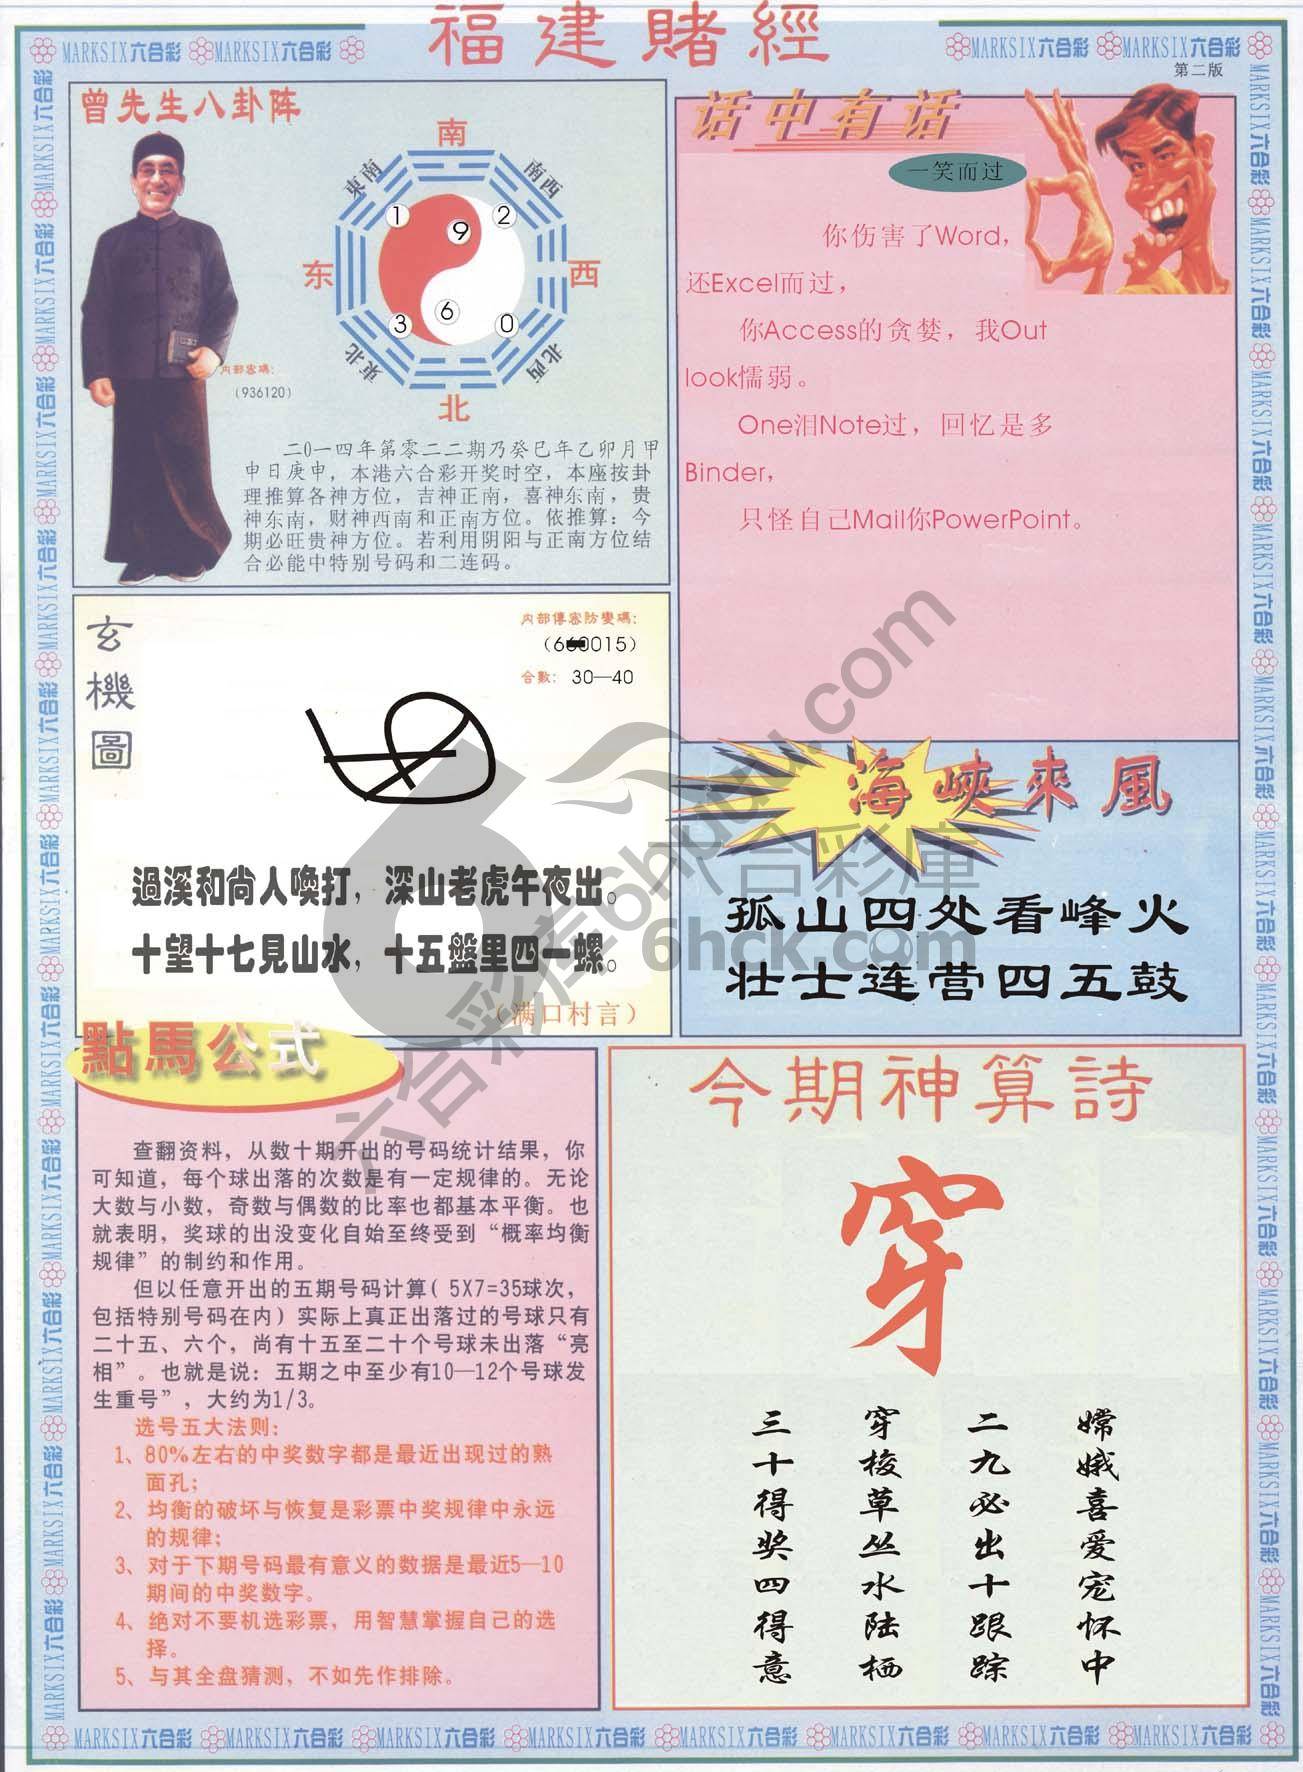 福建賭經
MARKSIX六合彩 MARKSIX六合彩
MARKSIX六合彩 MARKSIX六合彩
第二版
曾先生八卦阵
南
東南
南西
1
9
2
东
西
3
6
0
東北
北西
北
内部密碼:
(936120)
二0一四年第零二二期乃癸巳年乙卯月甲
申日庚申，本港六合彩开奖时空，本座按卦
理推算各神方位，吉神正南，喜神东南，贵
神东南，财神西南和正南方位。依推算：今
期必旺贵神方位。若利用阴阳与正南方位结
合必能中特别号码和二连码。
话中有话
一笑而过
你伤害了Word，
还Excel而过，
你Access的贪婪，我Out
look懦弱。
One泪Note过，回忆是多
Binder，
只怪自己Mail你PowerPoint。
玄機圖
内部傳密防變碼:
合數: 30—40
過溪和尚人喚打，深山老虎午夜出。
十望十七見山水，十五盤里四一螺。
（满口村言）
海峽來風
孤山四处看峰火
壮士连营四五鼓
點馬公式
查翻资料，从数十期开出的号码统计结果，你
可知道，每个球出落的次数是有一定规律的。无论
大数与小数，奇数与偶数的比率也都基本平衡。也
就表明，奖球的出没变化自始至终受到“概率均衡
规律”的制约和作用。
但以任意开出的五期号码计算( 5X7=35球次，
包括特别号码在内）实际上真正出落过的号球只有
二十五、六个，尚有十五至二十个号球未出落“亮
相”。也就是说：五期之中至少有10—12个号球发
生重号”，大约为1/3。
选号五大法则：
1、80%左右的中奖数字都是最近出现过的熟
面孔；
2、均衡的破坏与恢复是彩票中奖规律中永远
的规律；
3、对于下期号码最有意义的数据是最近5—10
期间的中奖数字。
4、绝对不要机选彩票，用智慧掌握自己的选
择。
5、与其全盘猜测，不如先作排除。
今期神算詩
穿
嫦娥喜爱宠怀中
二九必出十跟踪
穿梭草丛水陆栖
三十得奖四得意
六合彩库6hpudu.com
六合彩庫
6hck.com
MARKSIX六合彩 MARKSIX六合彩 MARKSIX六合彩 MARKSIX六合彩 MARKSIX六合彩 MARKSIX六合彩 MARKSIX六合彩 MARKSIX六合彩